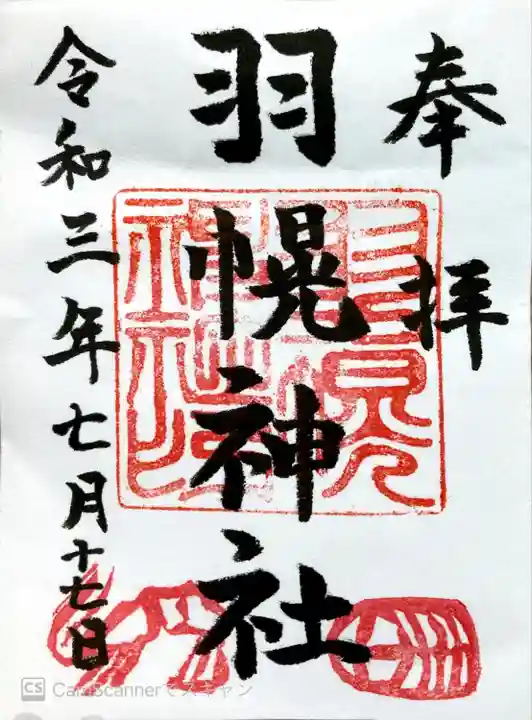 奉拝
羽幌神社
令和三年七月十七日
CS CamScannerでスキャン